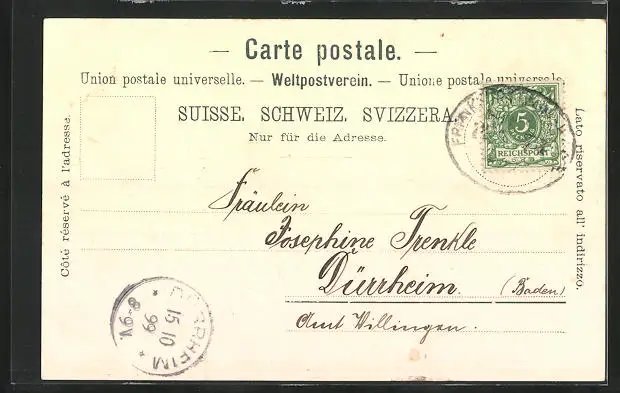 — Carte postale. —
Union postale universelle. — Weltpostverein. — Unione postale universale.
SUISSE. SCHWEIZ. SVIZZERA.
Nur für die Adresse.
Côté réservé à l'adresse.
Lato riservato all' indirizzo.
5
REICHSPOST
Fräulein
Josephine Trenkle
Dürrheim. (Baden)
Amt Villingen.
DÜRRHEIM
15 10
99
8-9V.